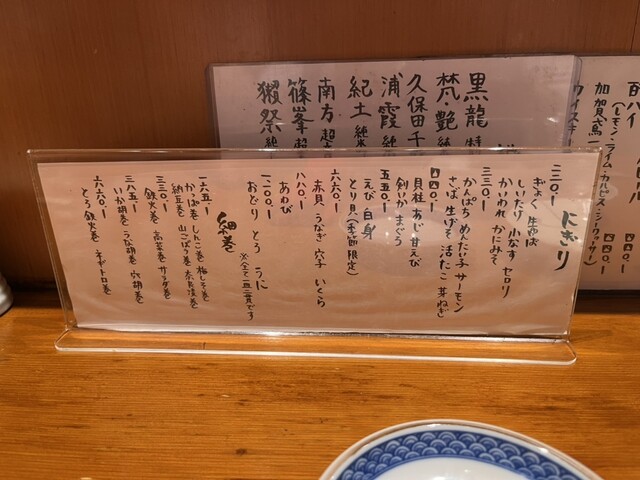 にぎり
二二〇.ー
ぎょく 生ゆば
しいたけ 小なす セロリ
かいわれ かにみそ
三三〇.ー
かんぱち めんたい子 サーモン
さば 生げそ 活だこ 芽ねぎ
四四〇.ー
貝柱 あじ 甘えび
剣いか まぐろ
五五〇.ー
えび 白身
とり貝(季節限定)
六六〇.ー
赤貝 うなぎ 穴子 いくら
八八〇.ー
あわび
一二〇〇.ー
おどり とろ うに
細巻
一六五.ー
かっぱ巻 しんこ巻 梅しそ巻
納豆巻 山ごぼう巻 奈良漬巻
三三〇.ー
鉄火巻 高菜巻 サラダ巻
三八五.ー
いか胡巻 うに胡巻 穴胡巻
六六〇.ー
とろ鉄火巻 ネギトロ巻
黒龍
梵・艶 純
久保田 千
浦霞 純
紀土 純米
南方 超
篠峯 超
獺祭 純
加賀鳶
(レモン・ライム・カルピス・シークヮーサー)
四四〇.ー